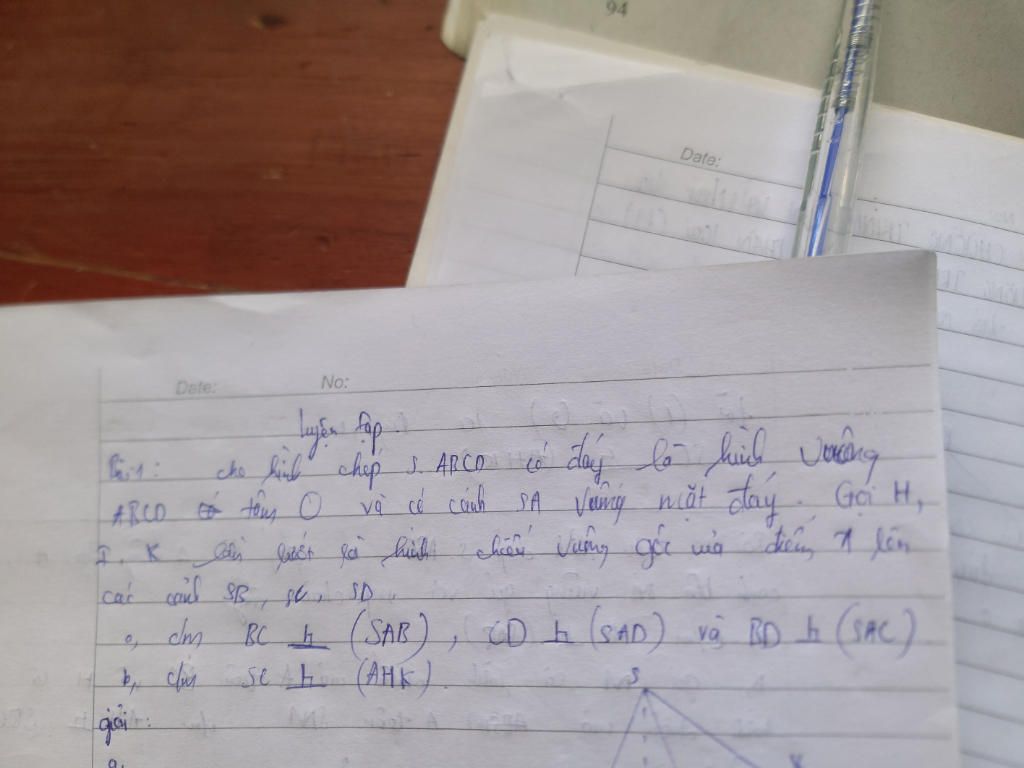 94
Date:
Date: No:
Luyện tập.
Bài 1: cho hình chóp S.ABCD có đáy là hình vuông
ABCD tâm O và có cạnh SA vuông mặt đáy. Gọi H,
I, K lần lượt là hình chiếu vuông góc của điểm A lên
các cạnh SB, SC, SD
a, cm BC ⊥ (SAB), CD ⊥ (SAD) và BD ⊥ (SAC)
b, cm SC ⊥ (AHK).
S
giải:
K
a,